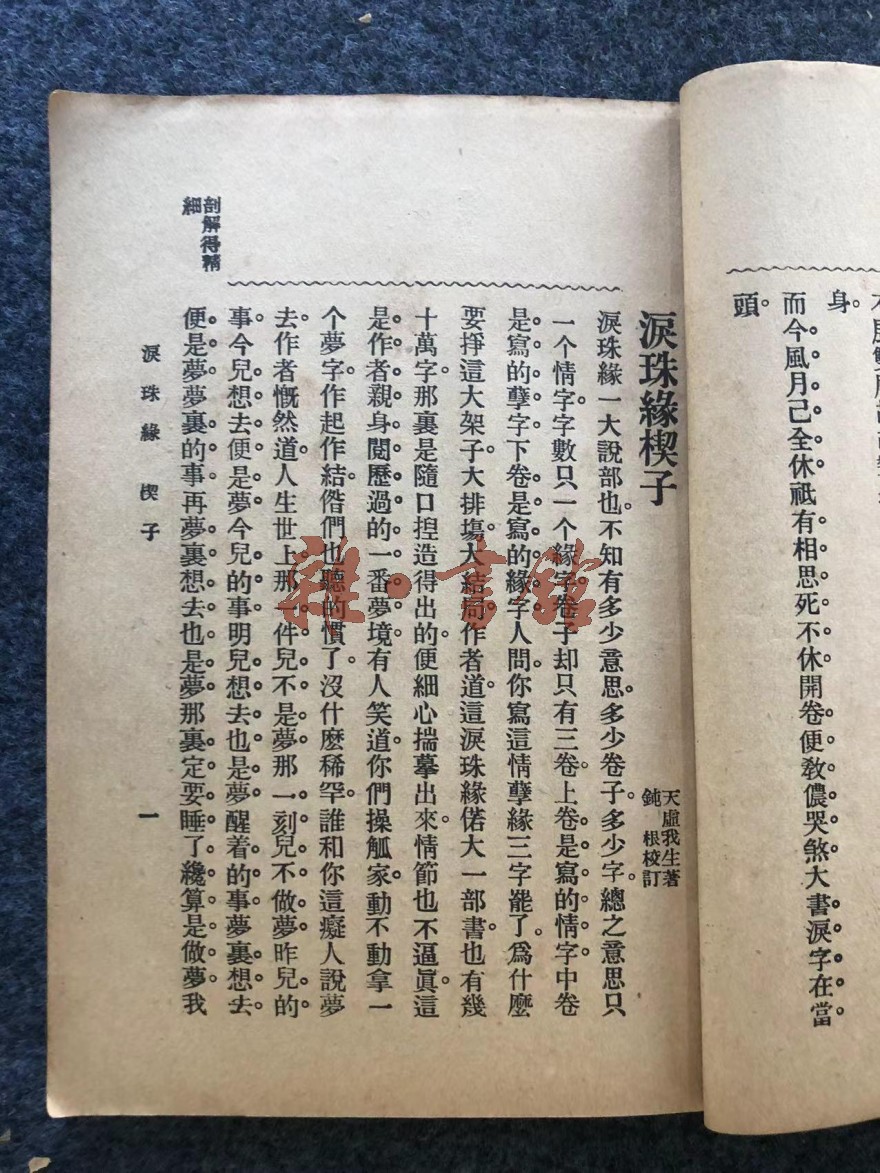 身。
而今風月已全休。祗有相思死不休。開卷便敎儂哭煞。大書淚字在當
頭。
淚珠緣楔子
天虛我生著
鈍根校訂
淚珠緣一大說部也。不知有多少意思。多少卷子。多少字。總之意思只
一个情字。字數只一个緣字。卷子却只有三卷。上卷是寫的情字。中卷
是寫的孽字。下卷是寫的緣字。人問你寫這情孽緣三字罷了。爲什麼
要掙這大架子。大排塲。大結局。作者道這淚珠緣偌大一部書。也有幾
十萬字。那裏是隨口揑造得出的。便細心揣摹出來。情節也不逼眞。這
是作者親身閱歷過的一番夢境。有人笑道。你們操觚家動不動拿一
个夢字作起作結。偺們也聽的慣了。沒什麽稀罕。誰和你這癡人說夢
去。作者慨然道。人生世上那一件兒不是夢。那一刻兒不做夢。昨兒的
事今兒想去便是夢。今兒的事明兒想去也是夢。醒着的事夢裏想去
便是夢。夢裏的事再夢裏想去也是夢。那裏定要睡了纔算是做夢。我
剖解得精
細
淚珠緣 楔子
一
雜·書館